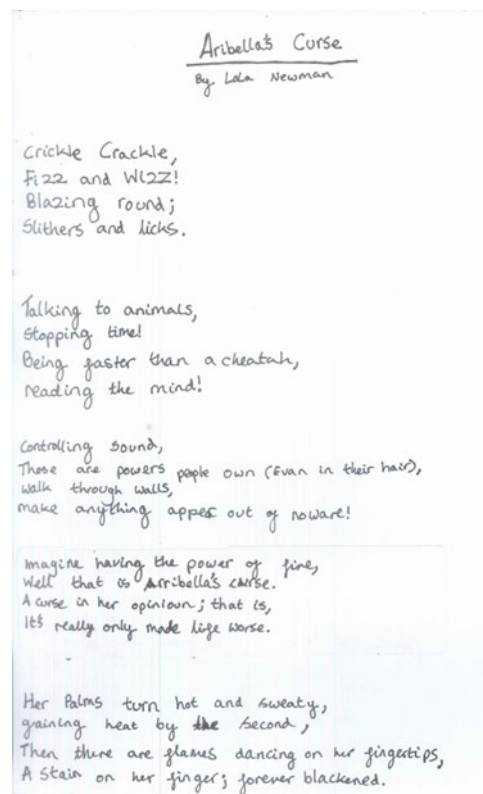 Aribella's Curse
By Lola Newman
Crickle Crackle,
Fizz and Wizz!
Blazing round;
Slithers and licks.
Talking to animals,
Stopping time!
Being faster than a cheatah,
reading the mind!
Controlling Sound,
These are powers people own (Evan in their hair),
walk through walls,
make anything apper out of noware!
Imagine having the power of fire,
Well that is Arribella's curse.
A curse in her opinioun; that is,
It's really only made life worse.
Her Palms turn hot and sweaty,
gaining heat by the second,
Then there are flames dancing on her fingertips,
A Stain on her finger; forever blackened.